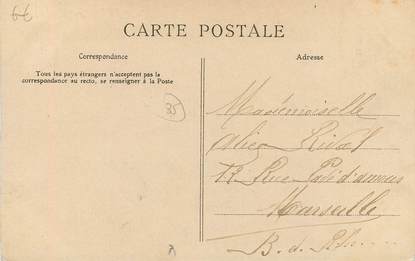 6€
CARTE POSTALE
Correspondance
Tous les pays étrangers n'acceptent pas la
correspondance au recto, se renseigner à la Poste
35
Adresse
Mademoiselle
Alice
Rue d'
Marseille
B. d. Rh